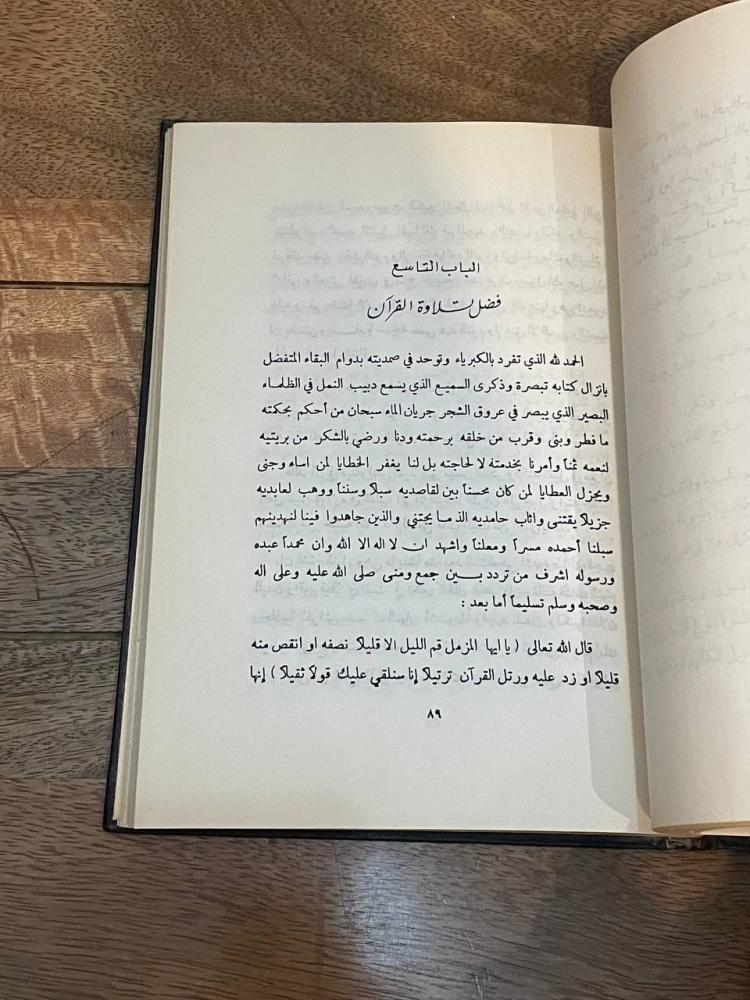 الباب التاسع
فضل تلاوة القرآن
الحمد لله الذي تفرد بالكبرياء وتوحد في صمديته بدوام البقاء المتفضل
بانزال كتابه تبصرة وذكرى السميع الذي يسمع دبيب النمل في الظلماء
البصير الذي يبصر في عروق الشجر جريان الماء سبحان من أحكم بحكمته
ما فطر وبنى وقرب من خلقه برحمته ودنا ورضي بالشكر من بريتيه
لنعمه ثمناً وأمرنا بخدمتة لا لحاجته بل لنا يغفر الخطايا لمن اساء وجنى
ويجزل العطايا لمن كان محسناً بين لقاصديه سبلاً وسنناً ووهب لعابديه
جزيلاً يقتنى واثاب حامديه الذ ما يجتني والذين جاهدوا فينا لنهدينهم
سبلنا أحمده مسراً ومعلناً واشهد ان لا اله الا الله وان محمداً عبده
ورسوله اشرف من تردد بين جمع ومنى صلى الله عليه وعلى اله
وصحبه وسلم تسليماً أما بعد :
قال الله تعالى ( يا ايها المزمل قم الليل الا قليلاً نصفه او انقص منه
قليلاً او زد عليه ورتل القرآن ترتيلاً إنا سنلقي عليك قولاً ثقيلاً ) إنها
٨٩